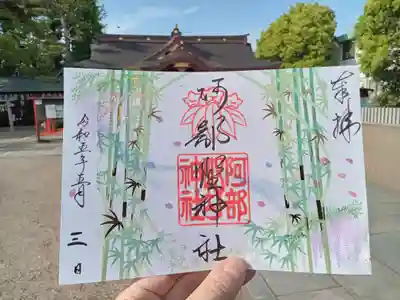 奉拝
阿部野神社
阿部野神社
令和五年五月
三日